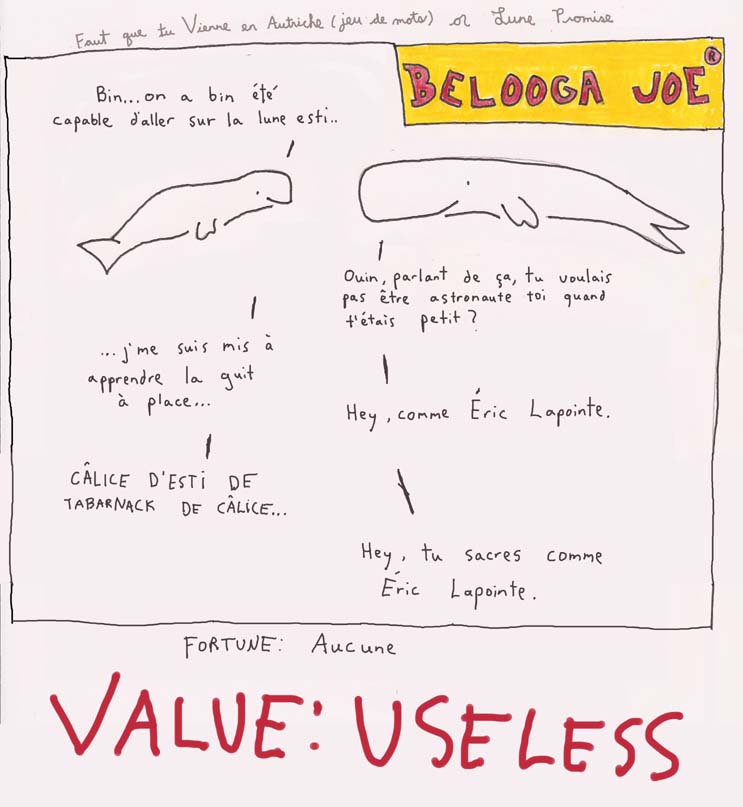 Faut que tu Vienne en Autriche (jeu de mots) or Lune Promise
BELOOGA JOE ®
Bin...on a bin été
capable d'aller sur la lune esti..
Ouin, parlant de ça, tu voulais
pas être astronaute toi quand
t'étais petit?
...j'me suis mis à
apprendre la guit
à place...
Hey, comme Éric Lapointe.
CÂLICE D'ESTI DE
TABARNACK DE CÂLICE...
Hey, tu sacres comme
Éric Lapointe.
FORTUNE: Aucune
VALUE: USELESS